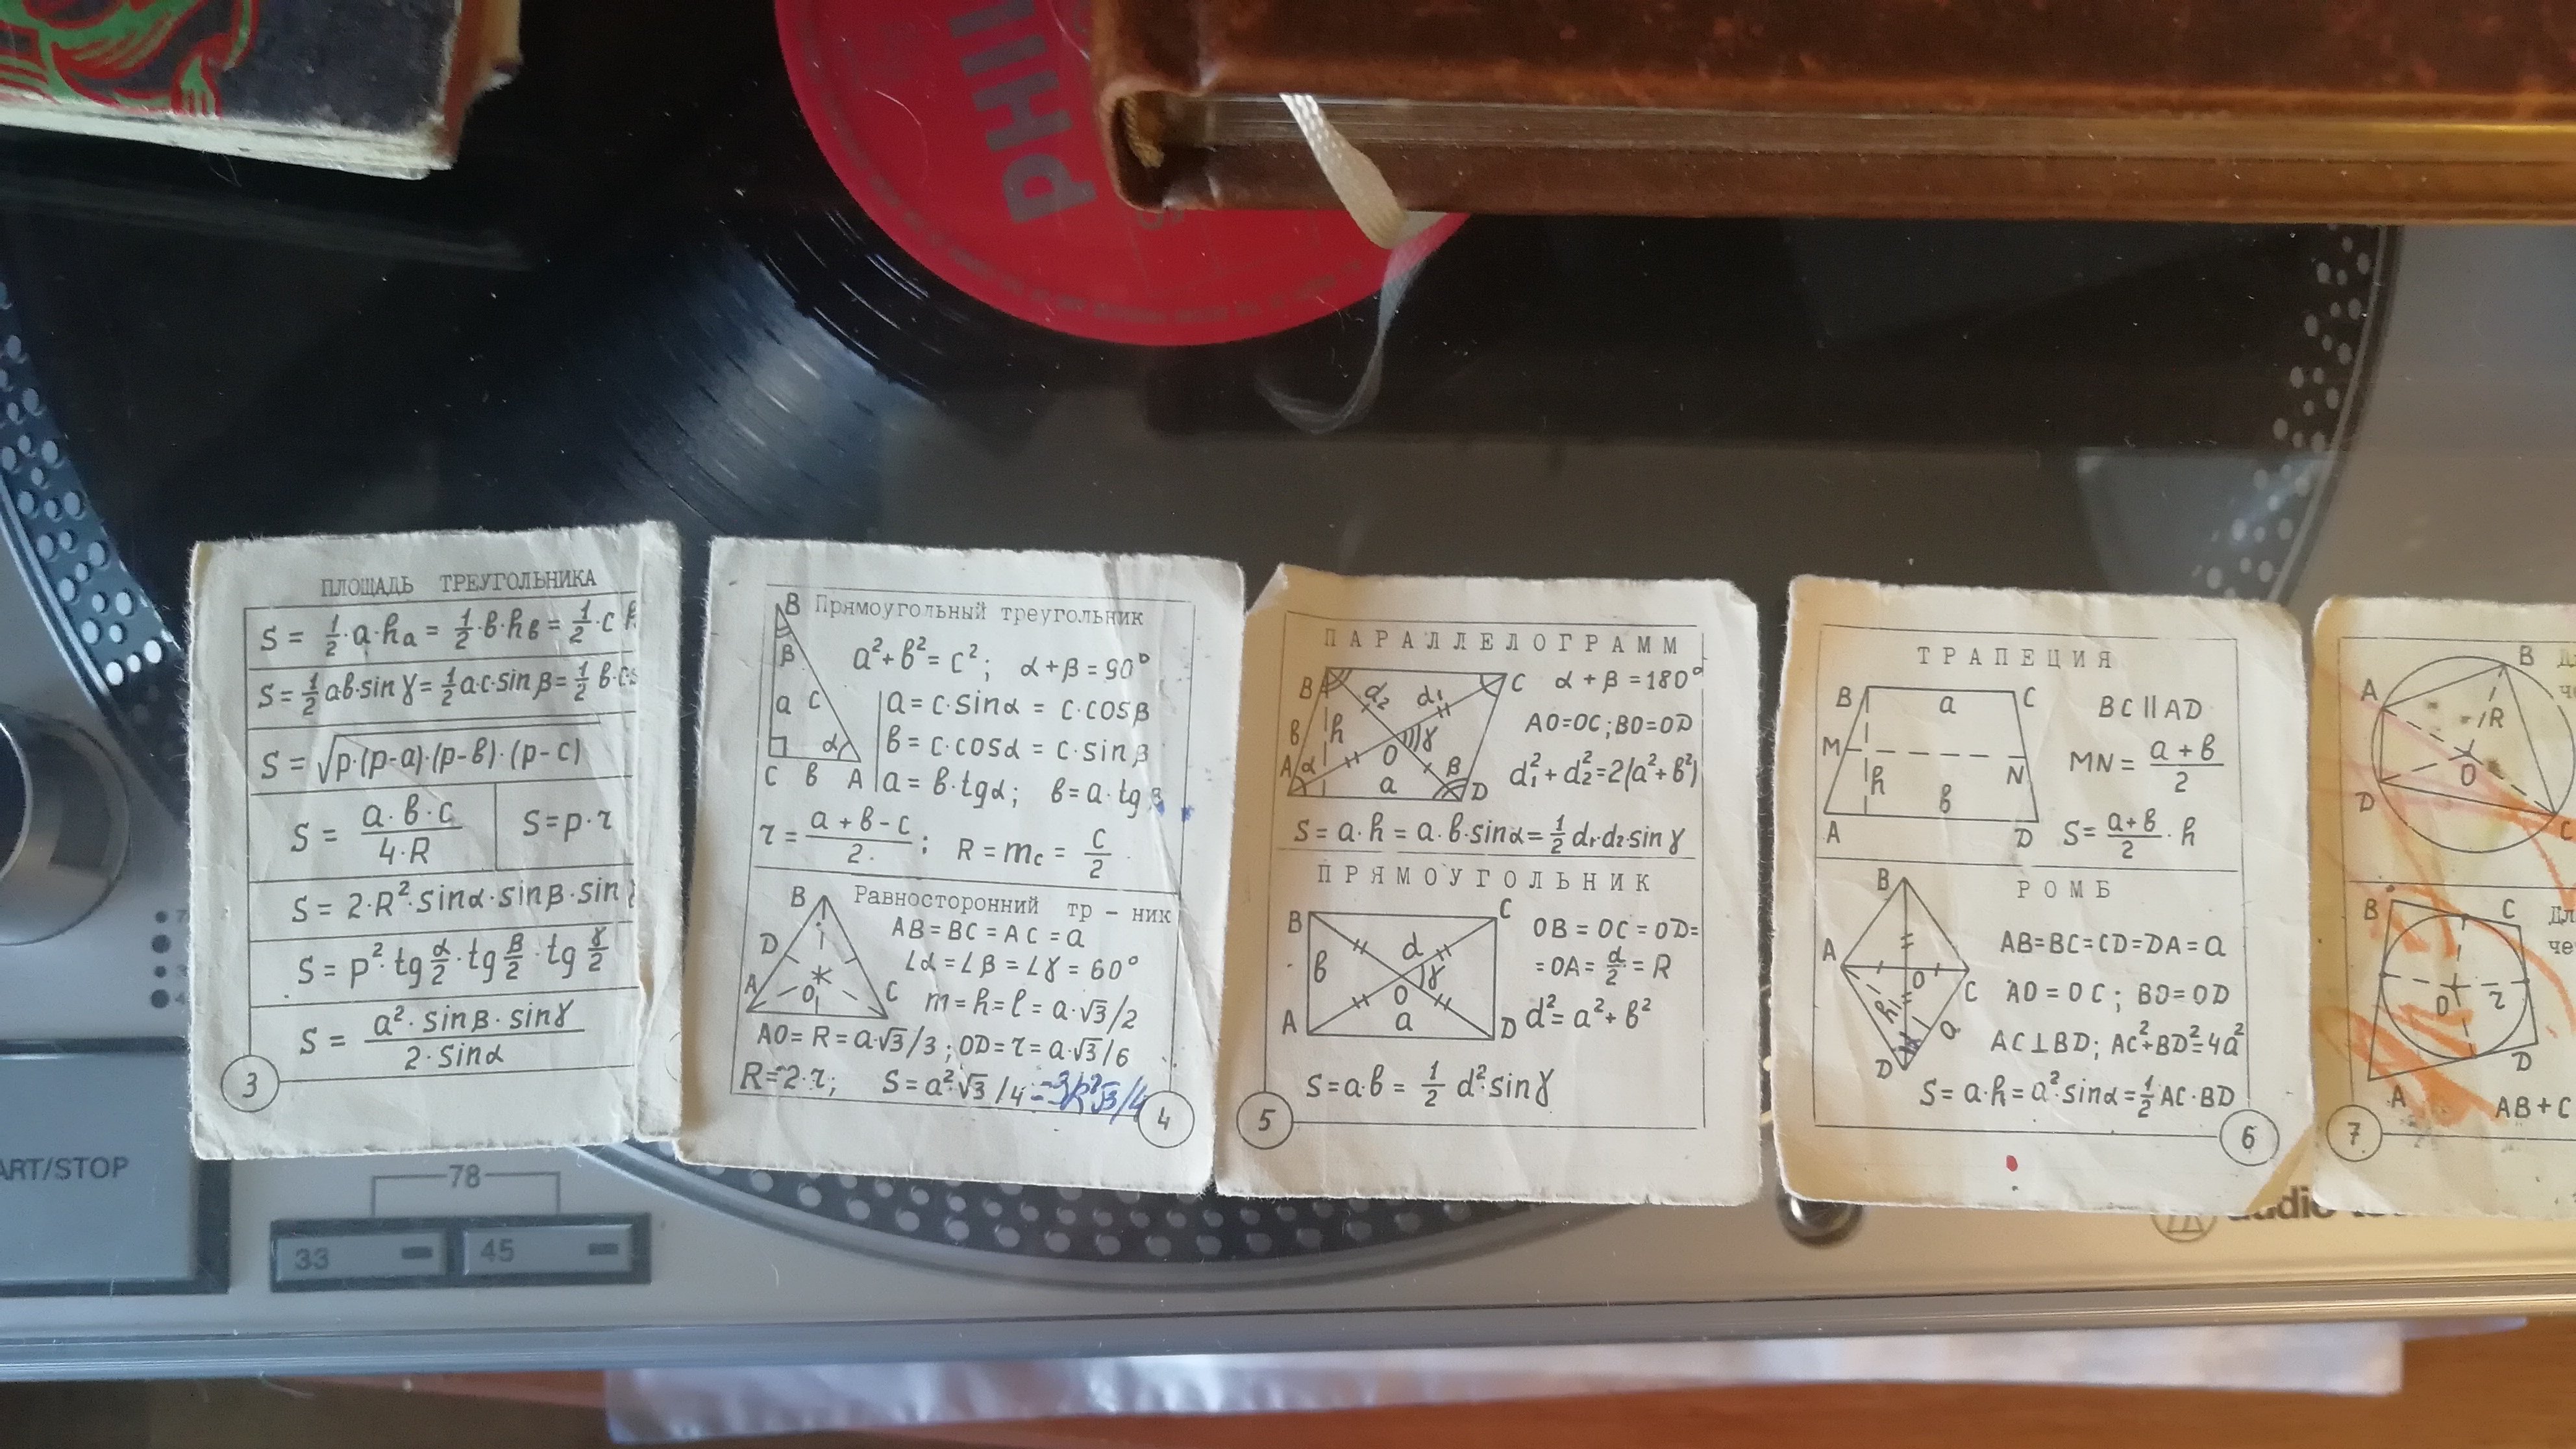 PHIL
ПЛОЩАДЬ ТРЕУГОЛЬНИКА
S = 1/2·a·hₐ = 1/2·в·hв = 1/2·c
S = 1/2 a·в·sin γ = 1/2 a·c·sin β = 1/2 в·c·s
S = √p·(p-a)·(p-в)·(p-c)
S = a·в·c / 4·R
S = p·r
S = 2·R²·sinα·sinβ·sin
S = p²·tg α/2·tg β/2·tg γ/2
S = a²·sinβ·sinγ / 2·sinα
3
Прямоугольный треугольник
B
β
a c
α
C в A
a²+в²=c²; α+β=90°
a = c·sinα = c·cosβ
в = c·cosα = c·sinβ
a = в·tgα; в = a·tgβ
r = a+в-c / 2; R = mc = c/2
Равносторонний тр - ник
B
D
A O C
AB = BC = AC = a
∠α = ∠β = ∠γ = 60°
m = h = l = a·√3/2
AO = R = a·√3/3; OD = r = a·√3/6
R = 2·r; S = a²·√3/4 = 3R²√3/4
4
ПАРАЛЛЕЛОГРАММ
B d₂ d₁ C
в h O γ
A α a β D
α + β = 180°
AO=OC; BO=OD
d₁²+d₂²=2(a²+в²)
S = a·h = a·в·sinα = 1/2 d₁·d₂·sin γ
ПРЯМОУГОЛЬНИК
B C
в d γ
O
A a D
OB = OC = OD=
= OA = d/2 = R
d² = a²+в²
S = a·в = 1/2 d²·sin γ
5
ТРАПЕЦИЯ
B a C
M N
h в
A D
BC || AD
MN = a+в / 2
S = a+в / 2 · h
РОМБ
B
A O C
h a
D
AB=BC=CD=DA=a
AO = OC; BO=OD
AC⊥BD; AC²+BD²=4a²
S = a·h = a²·sinα = 1/2 AC·BD
6
B
A
R
O
D
C
B C
O r
D
A
AB + C
7
ART/STOP
78
33 45